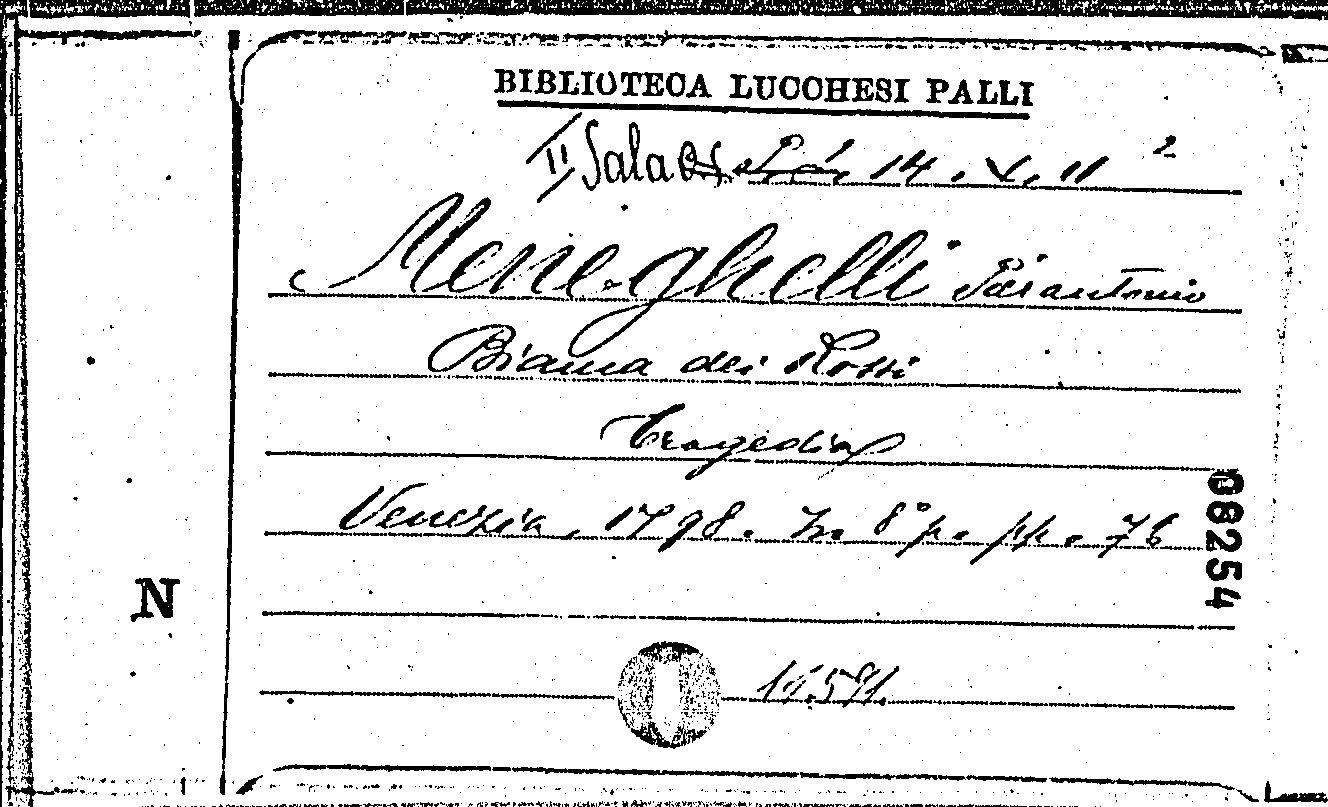 BIBLIOTECA LUCCHESI PALLI
II Sala 14. X. 11 2
Meneghelli Pierantonio
Bianca dei Rossi
Tragedia
Venezia, 1798. In 8° p. pp. 76
08254
N